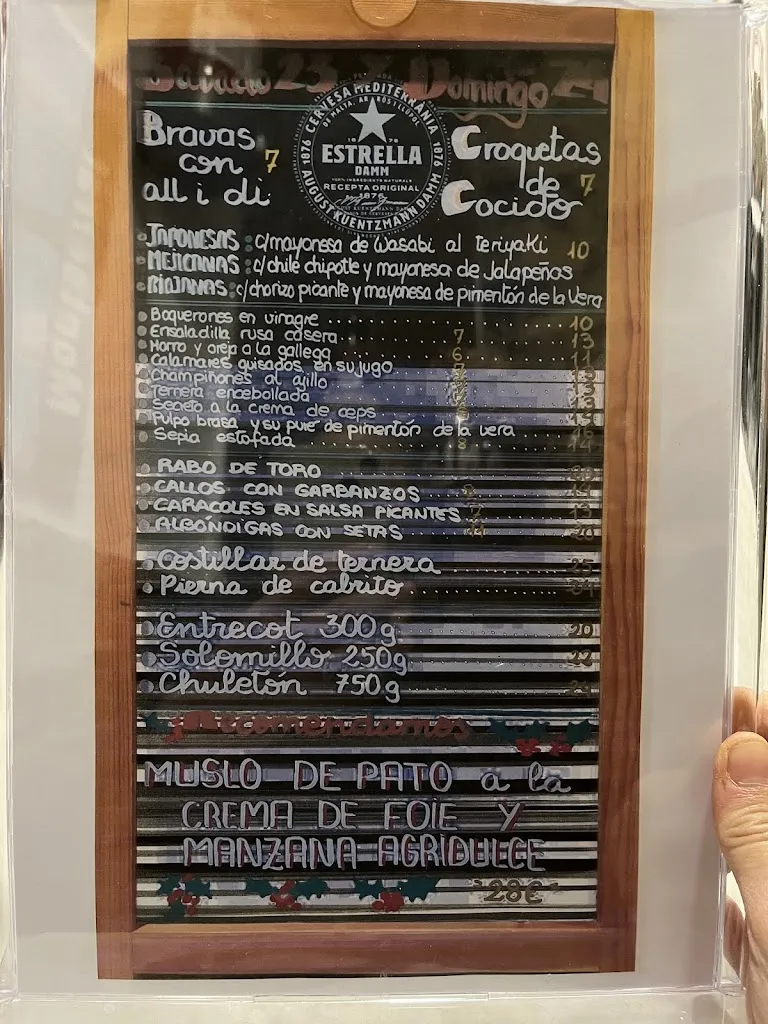 Sabado 23 y Domingo 24
CERVESA MEDITERRÀNIA
DE MALTA, ARRÒS I LLÚPOL
1876 1876
ESTRELLA
DAMM
100% INGREDIENTS NATURALS
RECEPTA ORIGINAL
1876
AUGUST KUENTZMANN DAMM
Bravas con all i oli 7
Croquetas de Cocido 7
JAPONESAS : c/mayonesa de wasabi al teriyaki 10
MEJICANAS : c/chile chipotle y mayonesa de Jalapeños
RIOJANAS : c/chorizo picante y mayonesa de pimentón de la Vera
Boquerones en vinagre 10
Ensaladilla rusa casera 7 13
Morro y oreja a la gallega 6 11
Calamares guisados en su jugo
Champiñones al ajillo
Ternera encebollada
Secreto a la crema de ceps
Pulpo brasa y su puré de pimentón de la vera
Sepia estofada 14
RABO DE TORO
CALLOS CON GARBANZOS
CARACOLES EN SALSA PICANTES 7 13
ALBONDIGAS CON SETAS 20
Costillar de ternera 25
Pierna de cabrito
Entrecot 300g 20
Solomillo 250g 22
Chuletón 750g
¡Recomendamos
MUSLO DE PATO a la
CREMA DE FOIE Y
MANZANA AGRIDULCE
28€